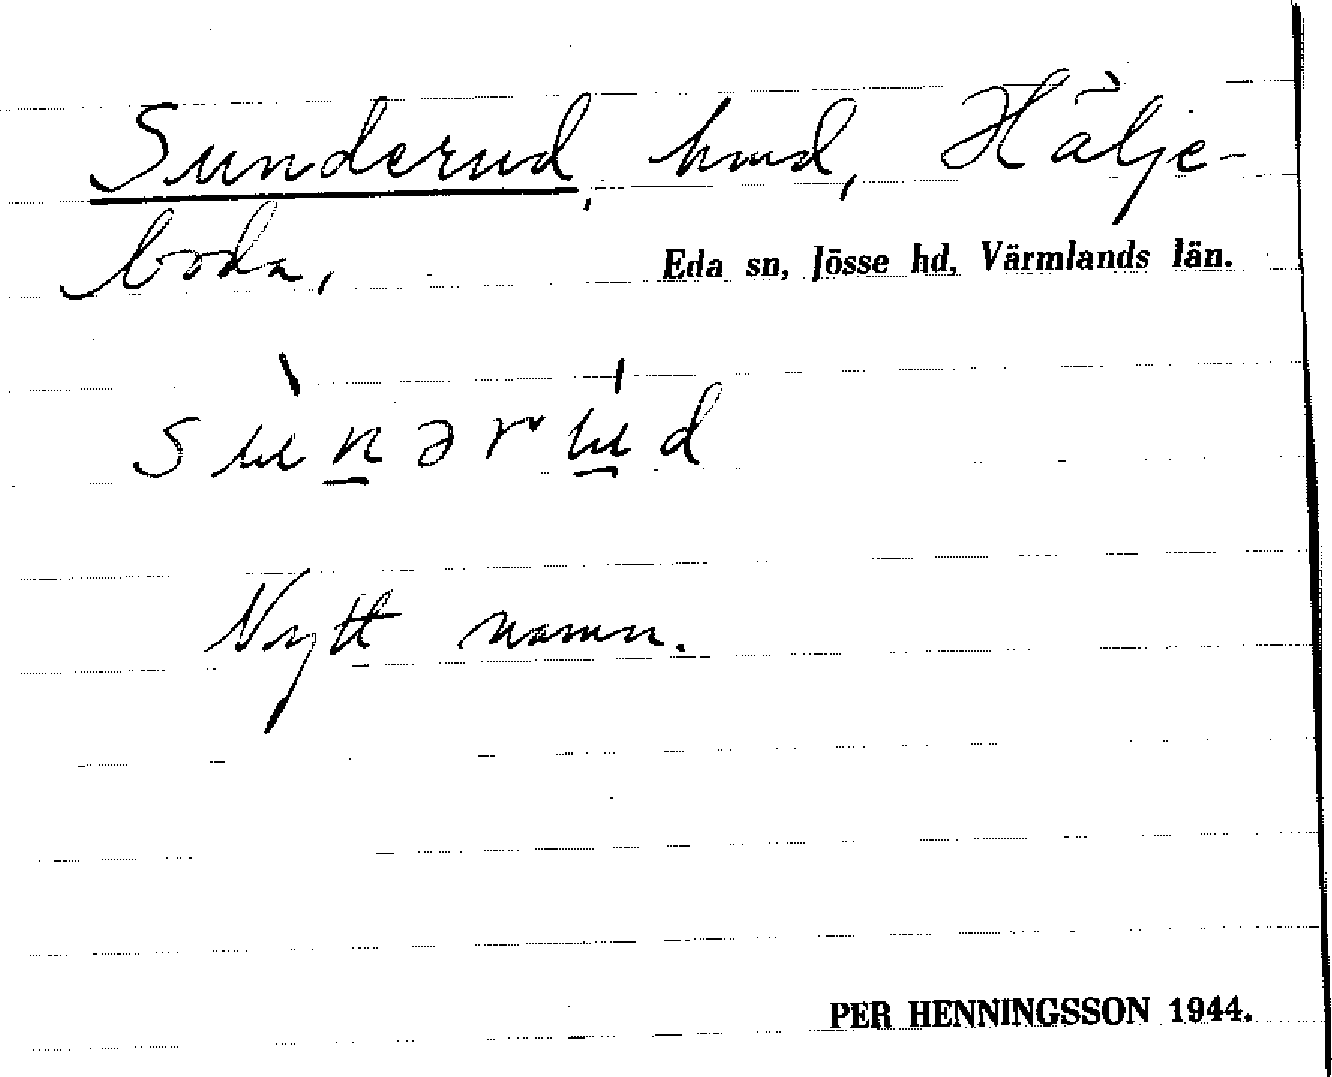 Sunderud, hmd, Hälje-
boda,
Eda sn, Jösse hd, Värmlands län.
sùnərúd
Nytt namn.
PER HENNINGSSON 1944.